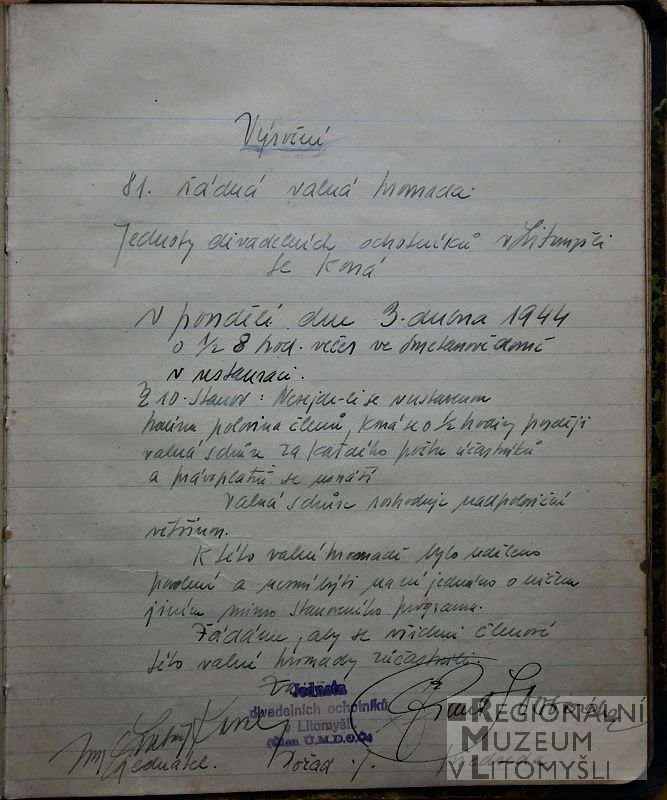 Výroční
81. řádná valná hromada
Jednoty divadelních ochotníků v Litomyšli
se koná
v pondělí dne 3. dubna 1944
o 1/2 8 hod. večer ve Smetanově domě
v restauraci.
§ 10. Stanov: Nesejde-li se v ustanovenou
hodinu polovina členů, koná se o 1/2 hodiny později
valná schůze za každého počtu účastníků
a právoplatně se usnáší
Valná schůze rozhoduje nadpoloviční
většinou.
K této valné hromadě bylo uděleno
povolení a nesmí býti na ní jednáno o ničem
jiném mimo stanoveného programu.
Žádáme, aby se všichni členové
této valné hromady zúčastnili.
Jednota
divadelních ochotníků
v Litomyšli
(člen Ú.M.D.O.Č.)
jednatel. Pořad ./. předseda
REGIONÁLNÍ
MUZEUM
V LITOMYŠLI